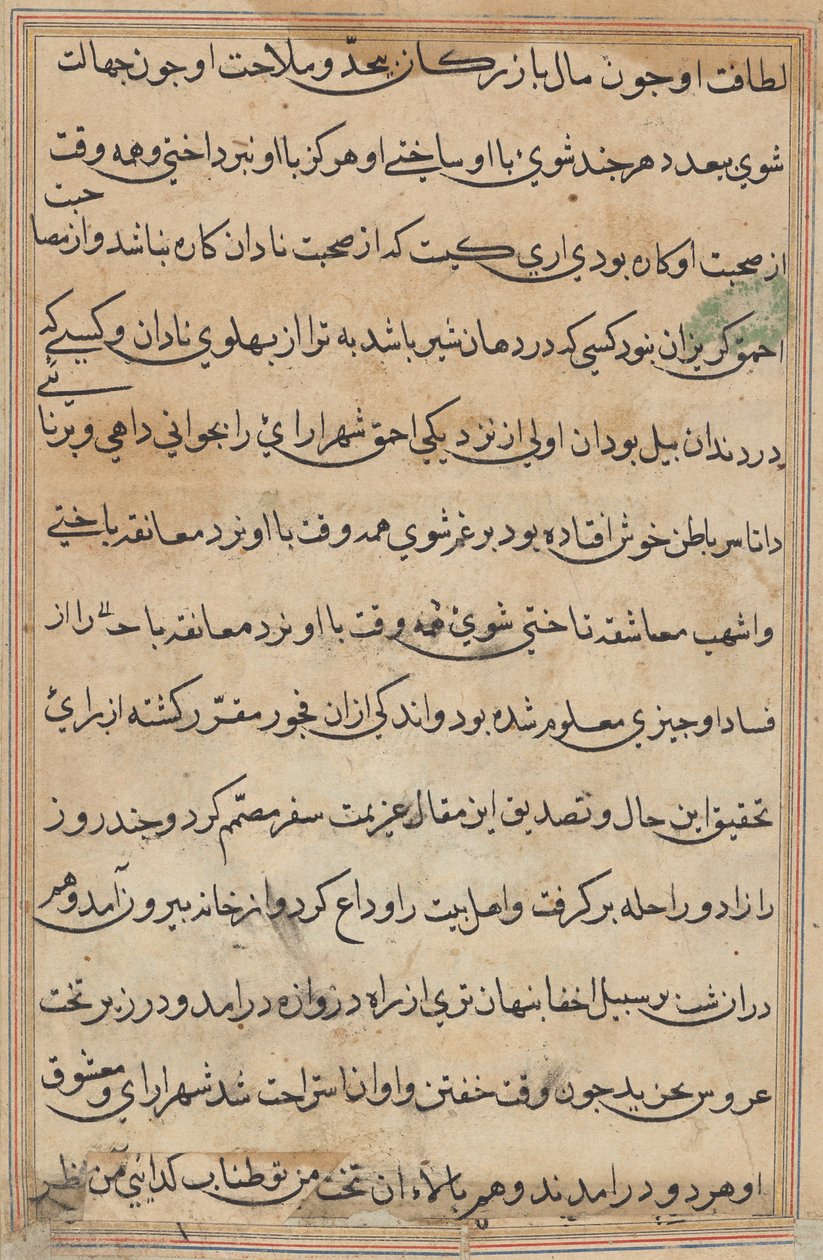 لطافت او جون مال بازركان بيحدّ و ملاحت او جون جهالت
شوي بيعدد هر جند شوي با او ساختي او هركز با او نبرداختي و همه وقت
از صحبت او كاره بودي اري كيست كه از صحبت نادان كاره نباشد و از مصاحبت
احمق كريزان نبود كسي كه در دهان شير باشد به ترا از بهلوي نادان و كسي كه
در دندان بيل بودان اولي از نزديكي احمق شهراراي را بجواني داهي و برنائي
داتا سر باطن خوش افتاده بود بر غم شوي همه وقت با او نرد معانقه باختي
و اشهب معاشقه تاختي شوي همه وقت با او نرد معانقه با را از
فساد او جيزي معلوم شده بود و اندكي ازان فجور مقرّر كشته از براي
تحقيق اين حال و تصديق اين مقال عزيمت سفر مصمّم كرد و جند روز
را زاد و راحله بر كرفت و اهل بيت را وداع كرد و از خانه بيرون آمد و هم
دران شب بر سبيل اخفا بنهان تري از راه دروازه درامد و در زير تخت
عروس بخزيد جون وقت خفتن و اوان استراحت شد شهراراي و معشوق
او هر دو درامدند و هم بالاء ان تخت من تو طناب كدائي من